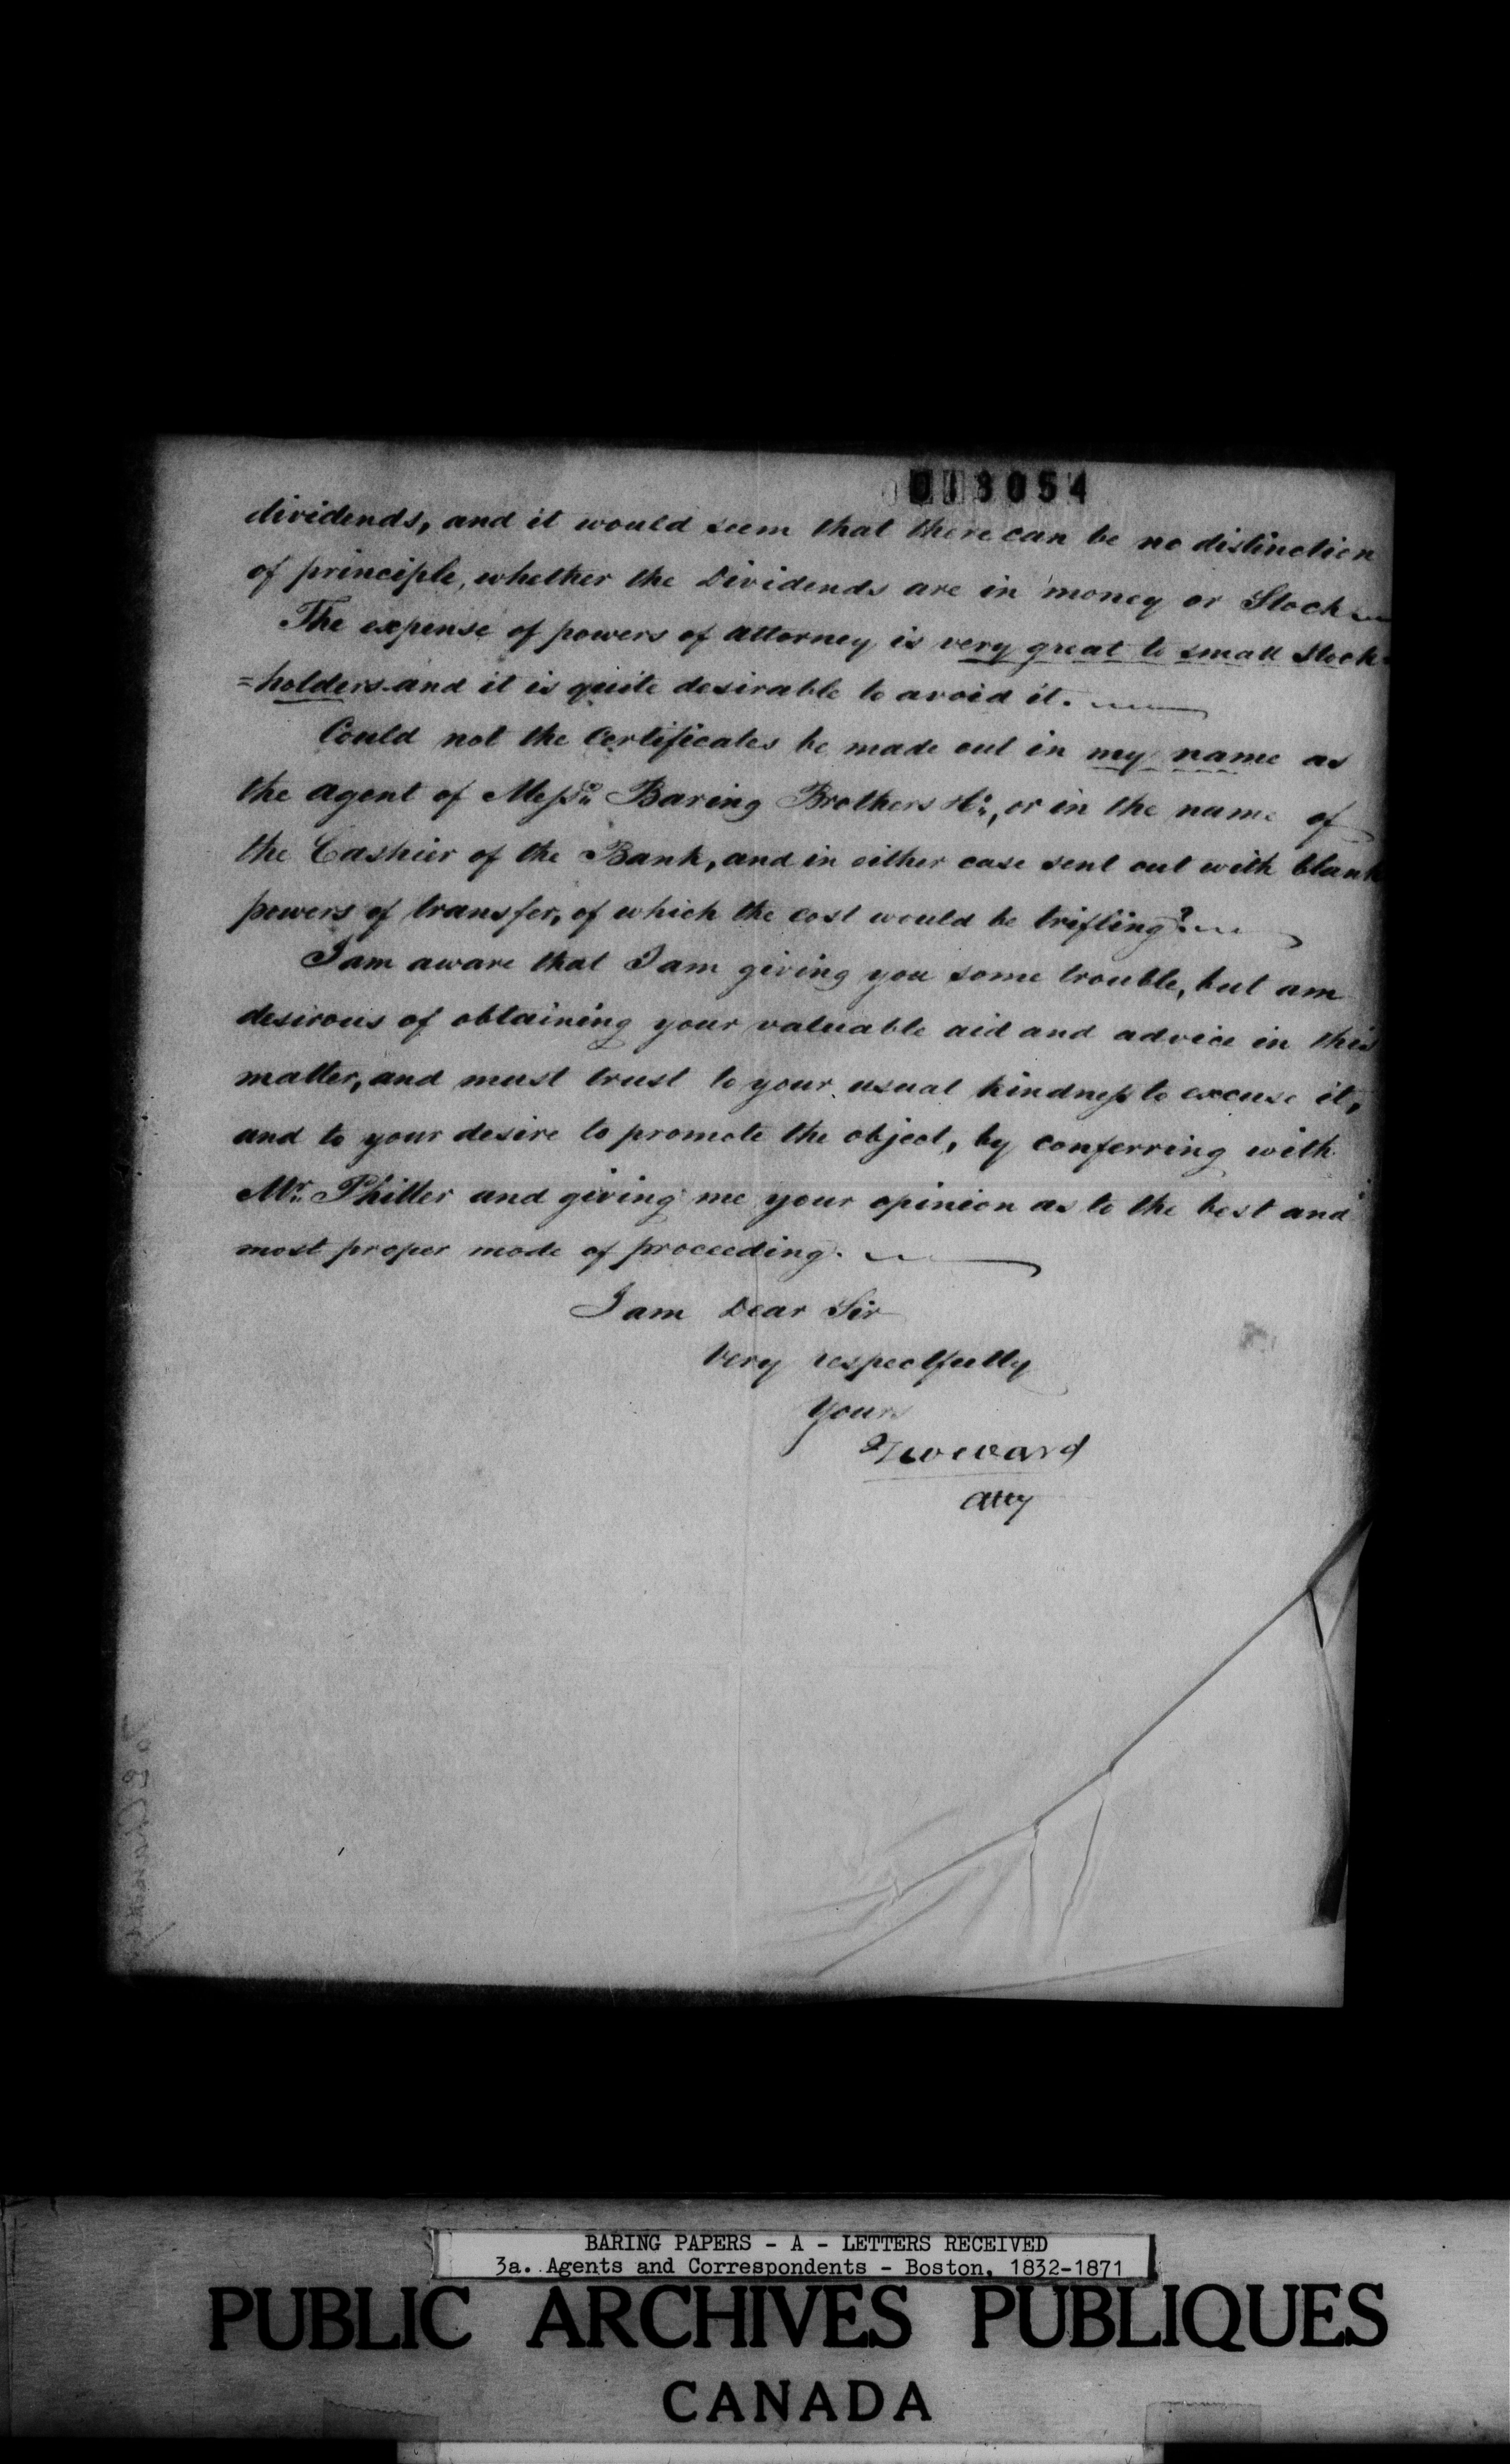 013054
dividends, and it would seem that there can be no distinction
of principle, whether the Dividends are in money or Stock
The expense of powers of attorney is very great to small Stock
=holders and it is quite desirable to avoid it.
Could not the Certificates be made out in my name as
the agent of Messrs Baring Brothers &Co, or in the name of
the Cashier of the Bank, and in either case sent out with blank
powers of transfer, of which the cost would be trifling?
I am aware that I am giving you some trouble, but am
desirous of obtaining your valuable aid and advice in this
matter, and must trust to your usual kindness to excuse it,
and to your desire to promote the object, by conferring with
Mr. Philler and giving me your opinion as to the best and
most proper mode of proceeding.
I am Dear Sir
Very respectfully
Yours
TWWard
Atty
BARING PAPERS - A - LETTERS RECEIVED
3a. Agents and Correspondents - Boston, 1832-1871
PUBLIC ARCHIVES PUBLIQUES
CANADA